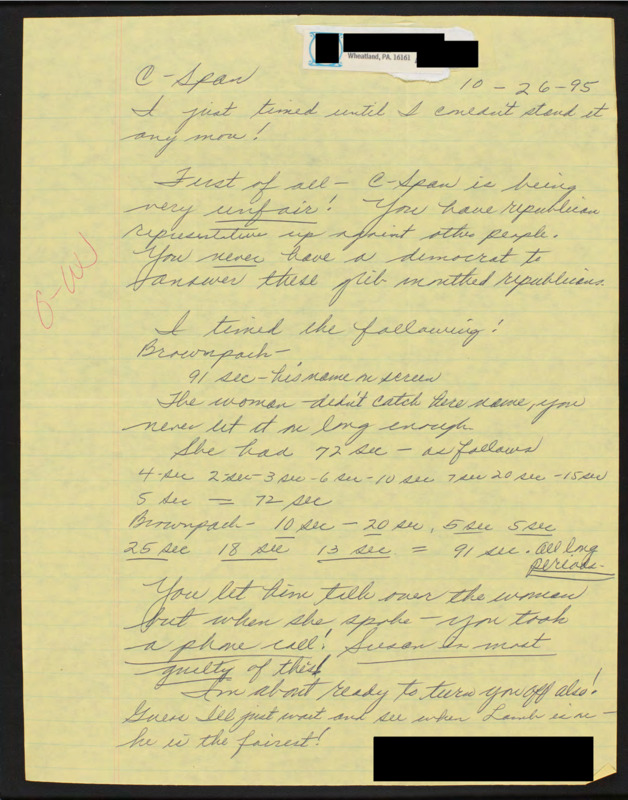 Wheatland, PA. 16161
C-Span 10-26-95
I just timed until I couldn't stand it
any more!
First of all - C-Span is being
very unfair! You have republican
representitive up against other people.
You never have a democrat to
answer these glib monthed republicans.
O-W
I timed the following!
Brownpach -
91 sec - his name on screen
The woman - didn't catch here name, you
never let it on long enough.
She had 72 sec - as follows
4-sec 2-sec-3 sec-6 sec-10 sec 7 sec 20 sec-15 sec
5 sec = 72 sec
Brownpach - 10 sec - 20 sec, 5 sec 5 sec
25 sec 18 sec 13 sec = 91 sec. all long
periods.
You let him talk over the woman
but when she spoke - you took
a phone call! Susan is most
guilty of this!
I'm about ready to turn you off also!
Guess I'll just wait and see when Lamb is on -
he is the fairest!